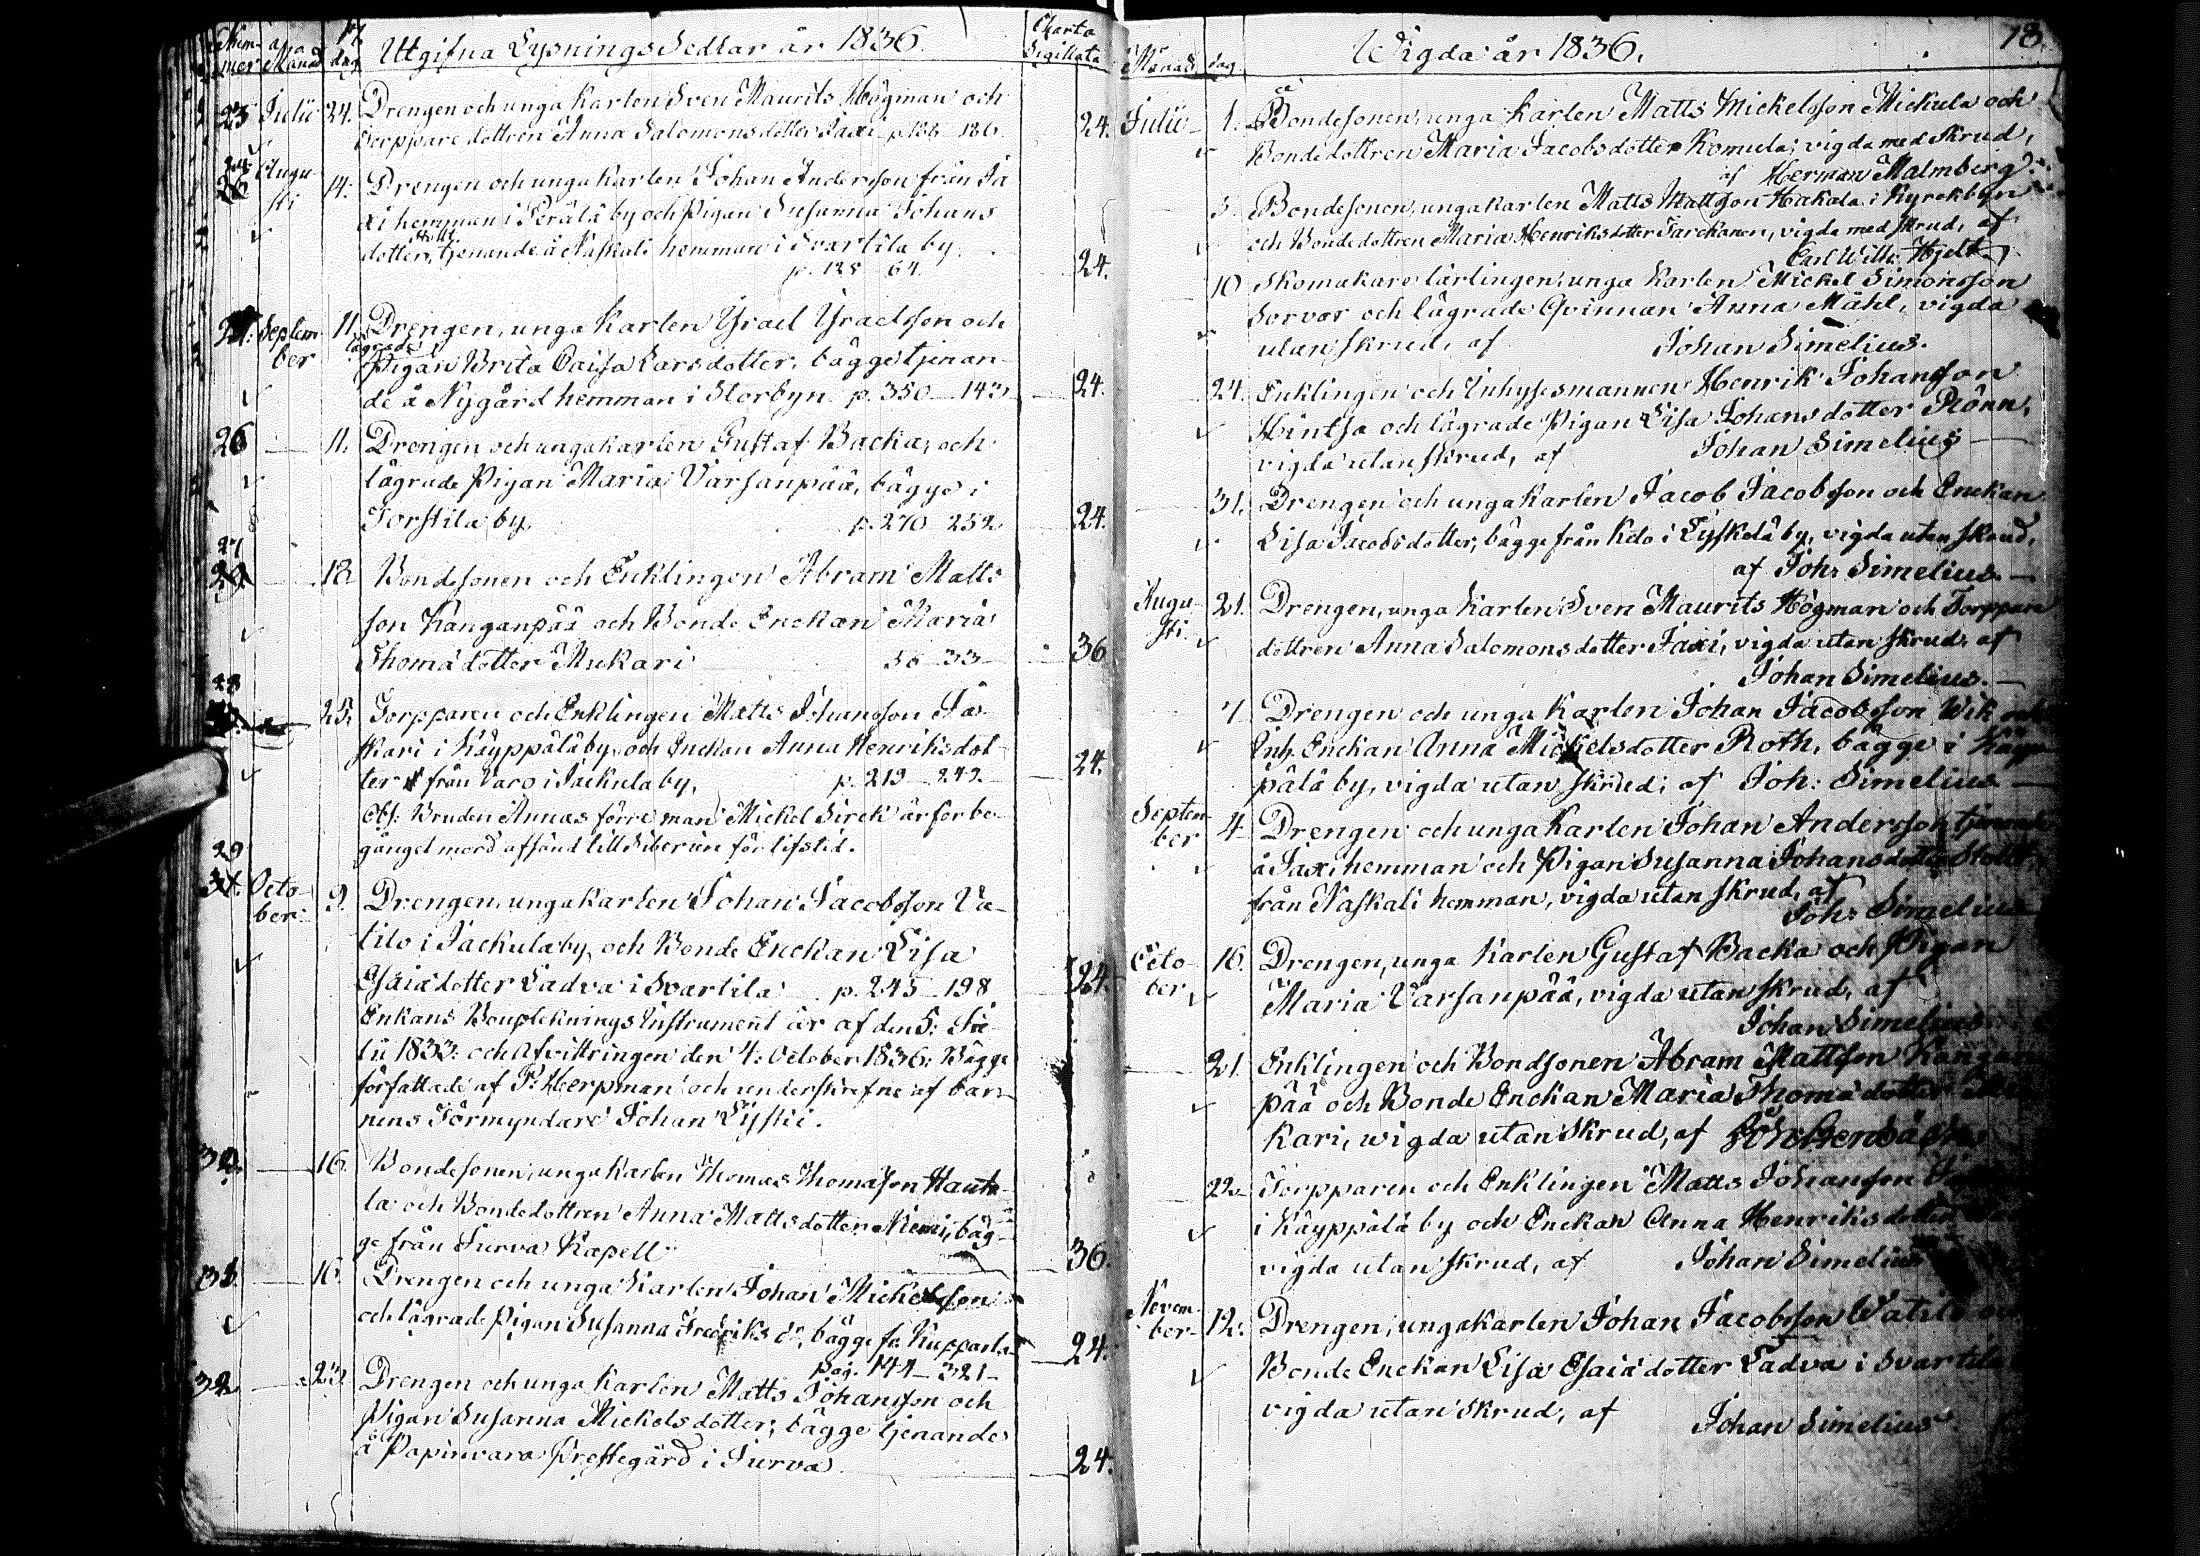 Num-
mer
Månad
dag
Utgifna Lysnings Sedlar år 1836.
Charta
Sigillata
23 Julii 24. Drengen och unga Karlen Sven Maurits Högman och
Torppare dottren Anna Salomonsdotter Jaxi p.188 186 24.
24 Augu-
sti
14. Drengen och unga Karlen Johan Andersson från Ja
xi hemman i Perälä by och Pigan Susanna Johans
dotter, Stolt tjenande å Naskali hemman i Svartila by.
p. 125 64. 24.
Septem-
ber
11. Drengen, unga Karlen Israel Israelsson och
lägrade
Pigan Brita Caisa Larsdotter, bägge tjenan-
de å Nygård hemman i Storbyn p. 350 143 24.
26 11. Drengen och unga Karlen Gustaf Backa, och
lägrade Pigan Maria Varsanpää, bägge i
Torstila by. p. 270 252 24.
27
18 Bondesonen och Enklingen Abram Matts
son Kanganpää och Bonde Enckan Maria
Thomädotter Mukari 33 36
28
25. Torpparen och Enklingen Matts Johansson Jäs
kari i Käyppälä by och Enckan Anna Henriksdot-
ter från Varo i Jackula by. p. 219 249. 24.
Obs: Bruden Annas förre man Mickel Sirck är för be-
gånget mord afsänd till Siberien för lifstid.
29
31. Octo-
ber
9. Drengen, unga Karlen Johan Jacobsson Va-
tilo i Jackula by, och Bonde Enckan Lisa
Esaiädotter Ladva i Svartila p. 245 198 24.
Enkans Boupteknings Instrument är af den 5: Ju-
lii 1833: och Afvittringen den 4: October 1836: Bägge
författade af P: Herpman och underskrefne af bar-
nens Förmyndare Johan Lyski.
30. 16. Bondesonen, unga Karlen Thomas Thomasson Hauta-
la och Bondedottren Anna Mattsdotter Niemi, bäg-
ge från Jurva Kapell 36.
31. 16. Drengen och unga Karlen Johan Mickelsson
och lägrade Pigan Susanna Fredriks dr, bägge fr. Kupparla
pag. 144 321 24.
32 23. Drengen och unga Karlen Matts Johansson och
Pigan Susanna Mickelsdotter, bägge tjenandes
å Papinvara Prestegård i Jurva 24.
Månad dag
Wigda år 1836.
78.
Julii 1. Bondesonen, unga Karlen Matts Mickelsson Mickula och
Bondedottren Maria Jacobsdotter Komula, vigda med skrud,
af Herman Malmberg.
3. Bondesonen, unga Karlen Matts Mattsson Hakola i Kyrckbyn
och Bondedottren Maria Henriksdotter Tarckanen, vigda med skrud, af
Carl Wilh: Hjelt
10 Skomakare lärlingen, unga Karlen Mickel Simonsson
Sorvar och lägrade Qvinnan Anna Mähl, vigda
utan skrud, af Johan Simelius.
24. Enklingen och Inhysesmannen Henrik Johansson
Hintsa och lägrade Pigan Lisa Johansdotter Rönn,
vigda utan skrud, af Johan Simelius
31. Drengen och unga Karlen Jacob Jacobsson och Enckan
Lisa Jacobsdotter, bägge från Keto i Lyskelä by, vigda utan skrud,
af Joh: Simelius.
Augu-
sti
21. Drengen, unga Karlen Sven Maurits Högman och Torppare
dottren Anna Salomonsdotter Jaxi, vigda utan skrud, af
Johan Simelius.
7 Drengen och unga Karlen Johan Jacobsson Wik och
Inh. Enckan Anna Mickelsdotter Roth, bägge i Käyp
pälä by, vigda utan skrud, af Joh: Simelius
Septem-
ber
4. Drengen och unga Karlen Johan Andersson tjenande
å Jaxi hemman och Pigan Susanna Johansdotter Stolt
från Naskali hemman, vigda utan skrud, af
Joh: Simelius
Octo-
ber
16. Drengen, unga Karlen Gustaf Backa och Pigan
Maria Varsanpää, vigda utan skrud, af
Johan Simelius
21. Enklingen och Bondsonen Abram Mattsson Kangan
pää och Bonde Enckan Maria Thomädotter Mu
kari, wigda utan Skrud, af
22. Torpparen och Enklingen Matts Johansson
i Käyppälä by och Enckan Anna Henriksdotter
vigda utan skrud, af Johan Simelius
Novem-
ber
12. Drengen, unga Karlen Johan Jacobsson Watilo och
Bonde Enckan Lisa Esaiädotter Ladva i Svartila
vigda utan skrud, af
Johan Simelius